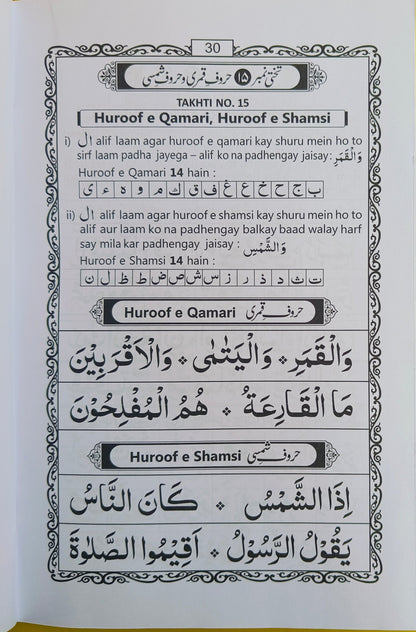 30
تختی نمبر ۱۵ حروفِ قمری و حروفِ شمسی
TAKHTI NO. 15
Huroof e Qamari, Huroof e Shamsi
i) ال alif laam agar huroof e qamari kay shuru mein ho to
sirf laam padha jayega – alif ko na padhengay jaisay : وَالْقَمَرِ
Huroof e Qamari 14 hain :
ب ج ح خ ع غ ف ق ك م و ه ء ی
ii) ال alif laam agar huroof e shamsi kay shuru mein ho to
alif aur laam ko na padhengay balkay baad walay harf
say mila kar padhengay jaisay : وَالشَّمْسِ
Huroof e Shamsi 14 hain :
ت ث د ذ ر ز س ش ص ض ط ظ ل ن
Huroof e Qamari حروفِ قمری
وَالْقَمَرِ ٭ وَالْيَتٰمٰى ٭ وَالْاَقْرَبِيْنَ
مَا الْقَارِعَةُ ٭ هُمُ الْمُفْلِحُوْنَ
Huroof e Shamsi حروفِ شمسی
اِذَا الشَّمْسُ ٭ كَانَ النَّاسُ
يَقُوْلُ الرَّسُوْلُ ٭ اَقِيْمُوا الصَّلٰوةَ